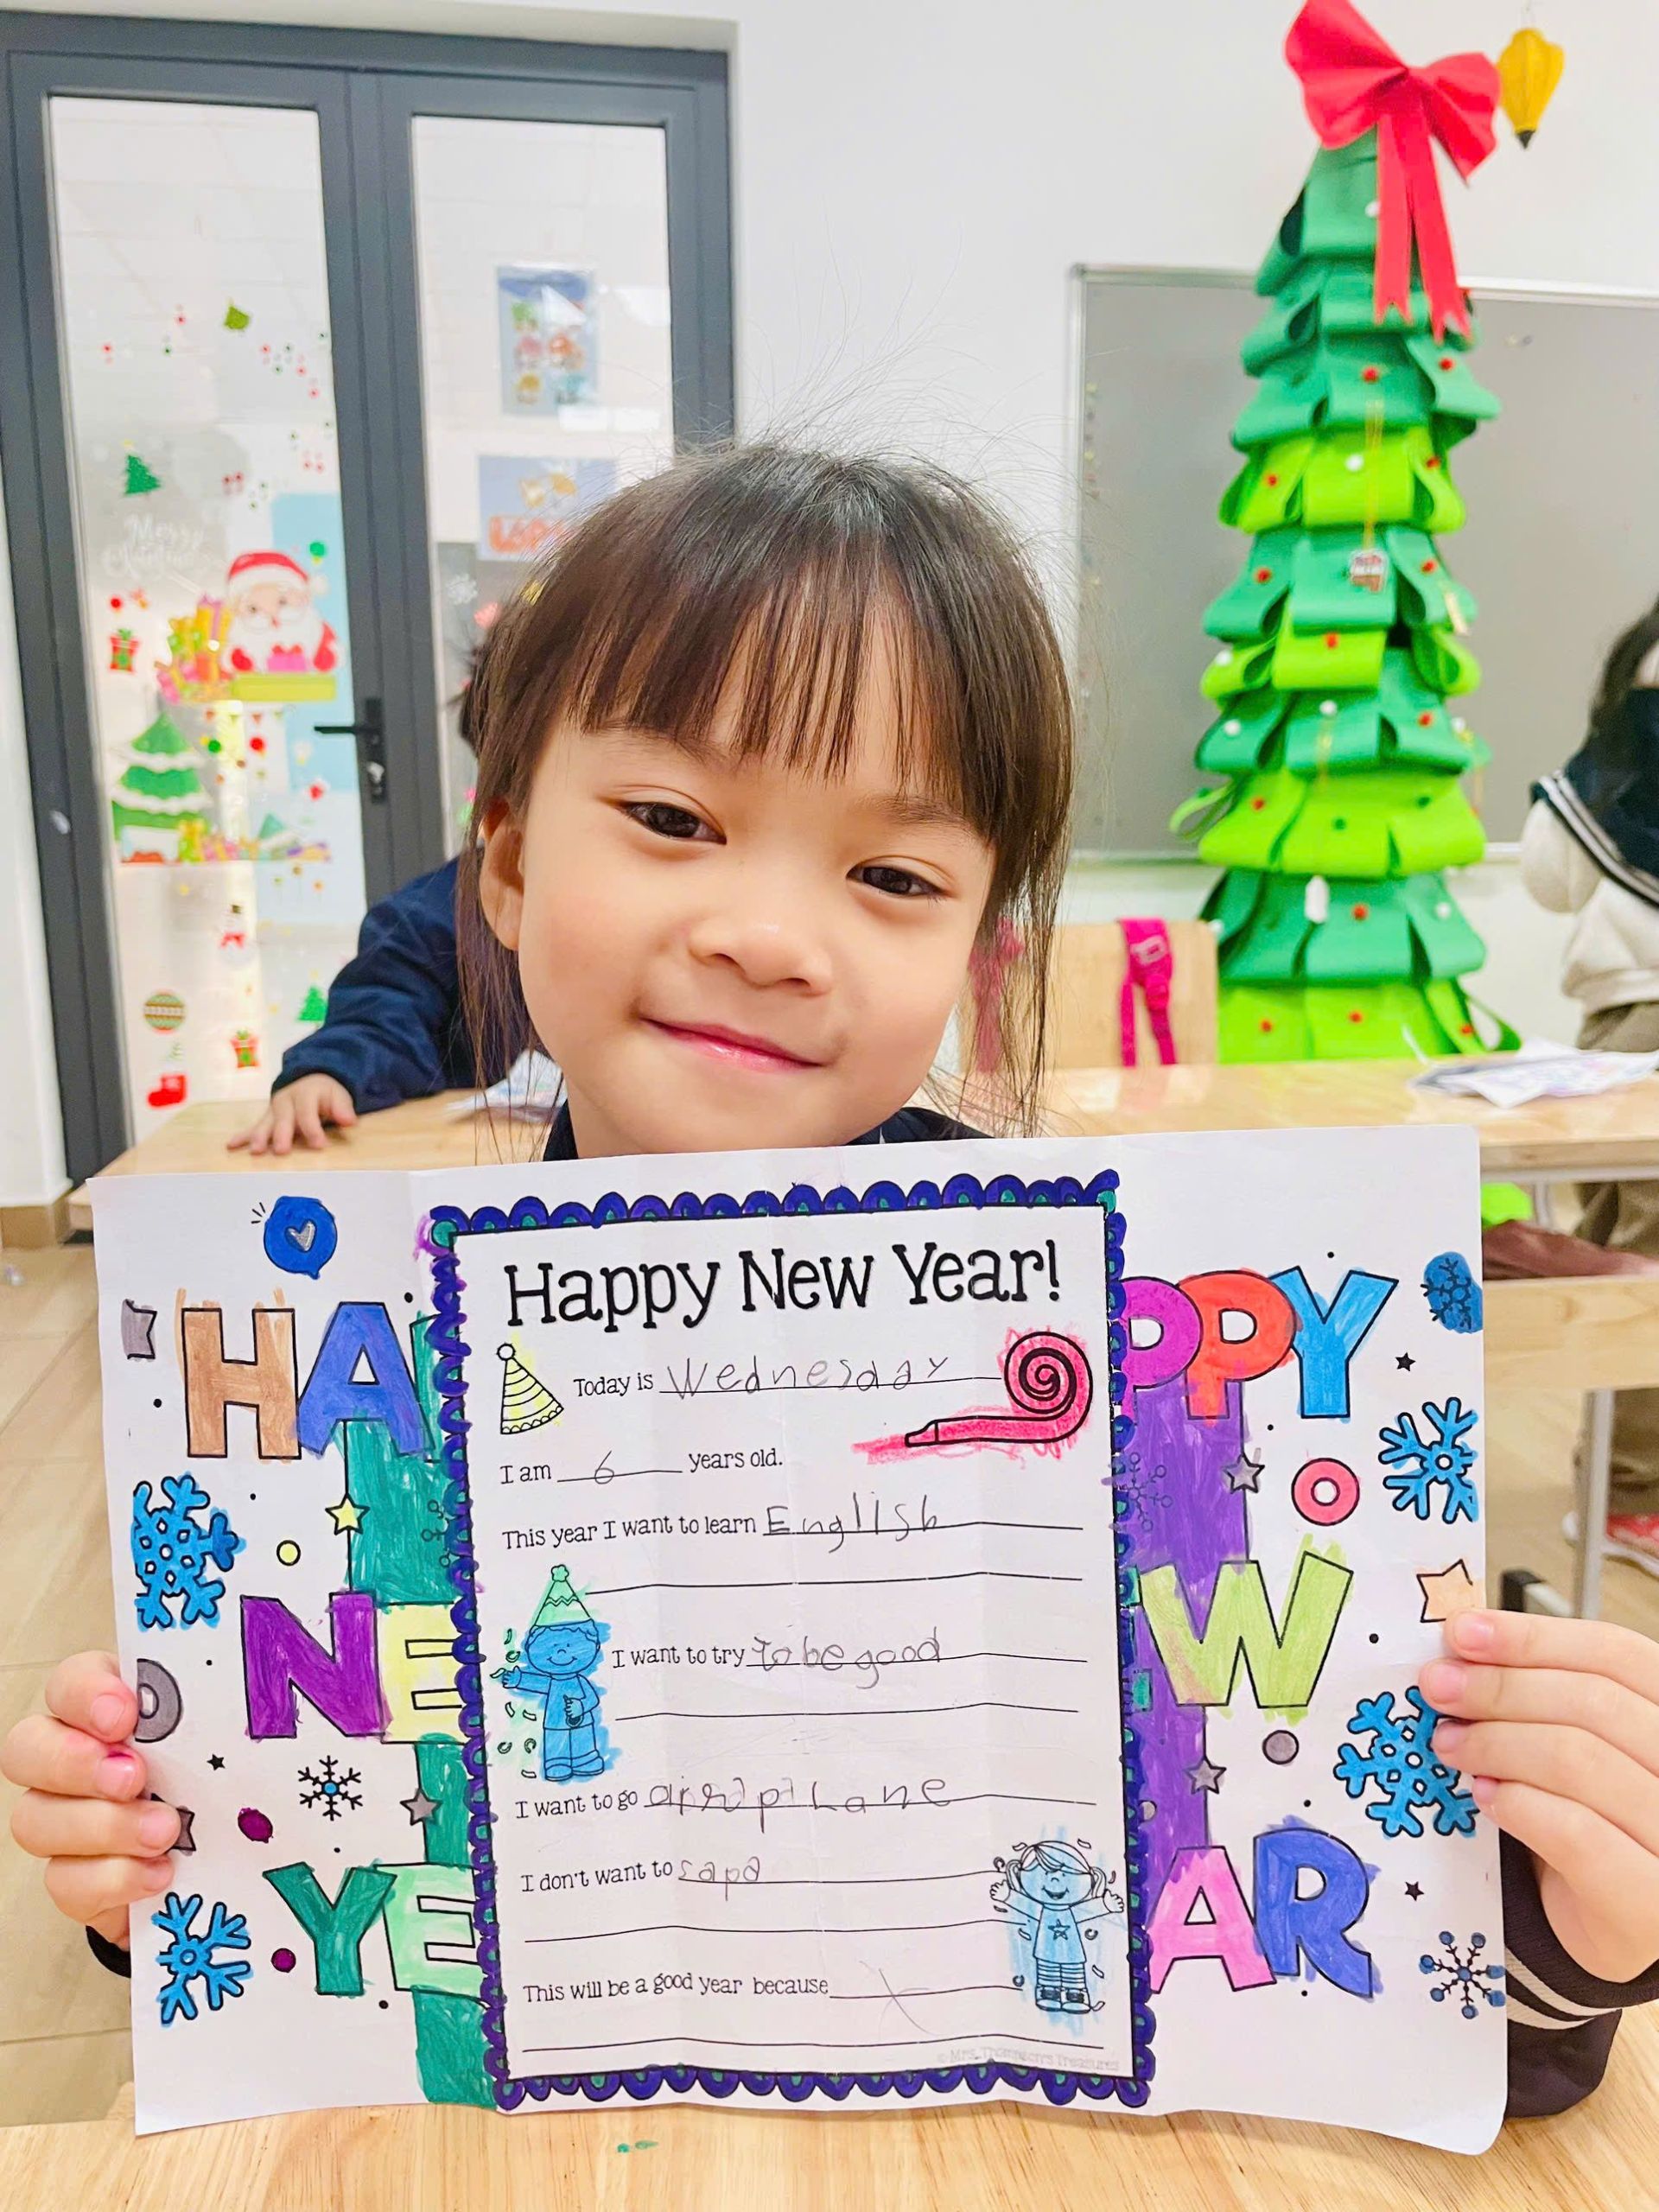 Merry
Christmas
HAPPY
NEW
YEAR
Happy New Year!
Today is Wednesday
I am 6 years old.
This year I want to learn English
I want to try to be good
I want to go airaplane
I don't want to sapa
This will be a good year because X
© Mrs. Thompson's Treasures